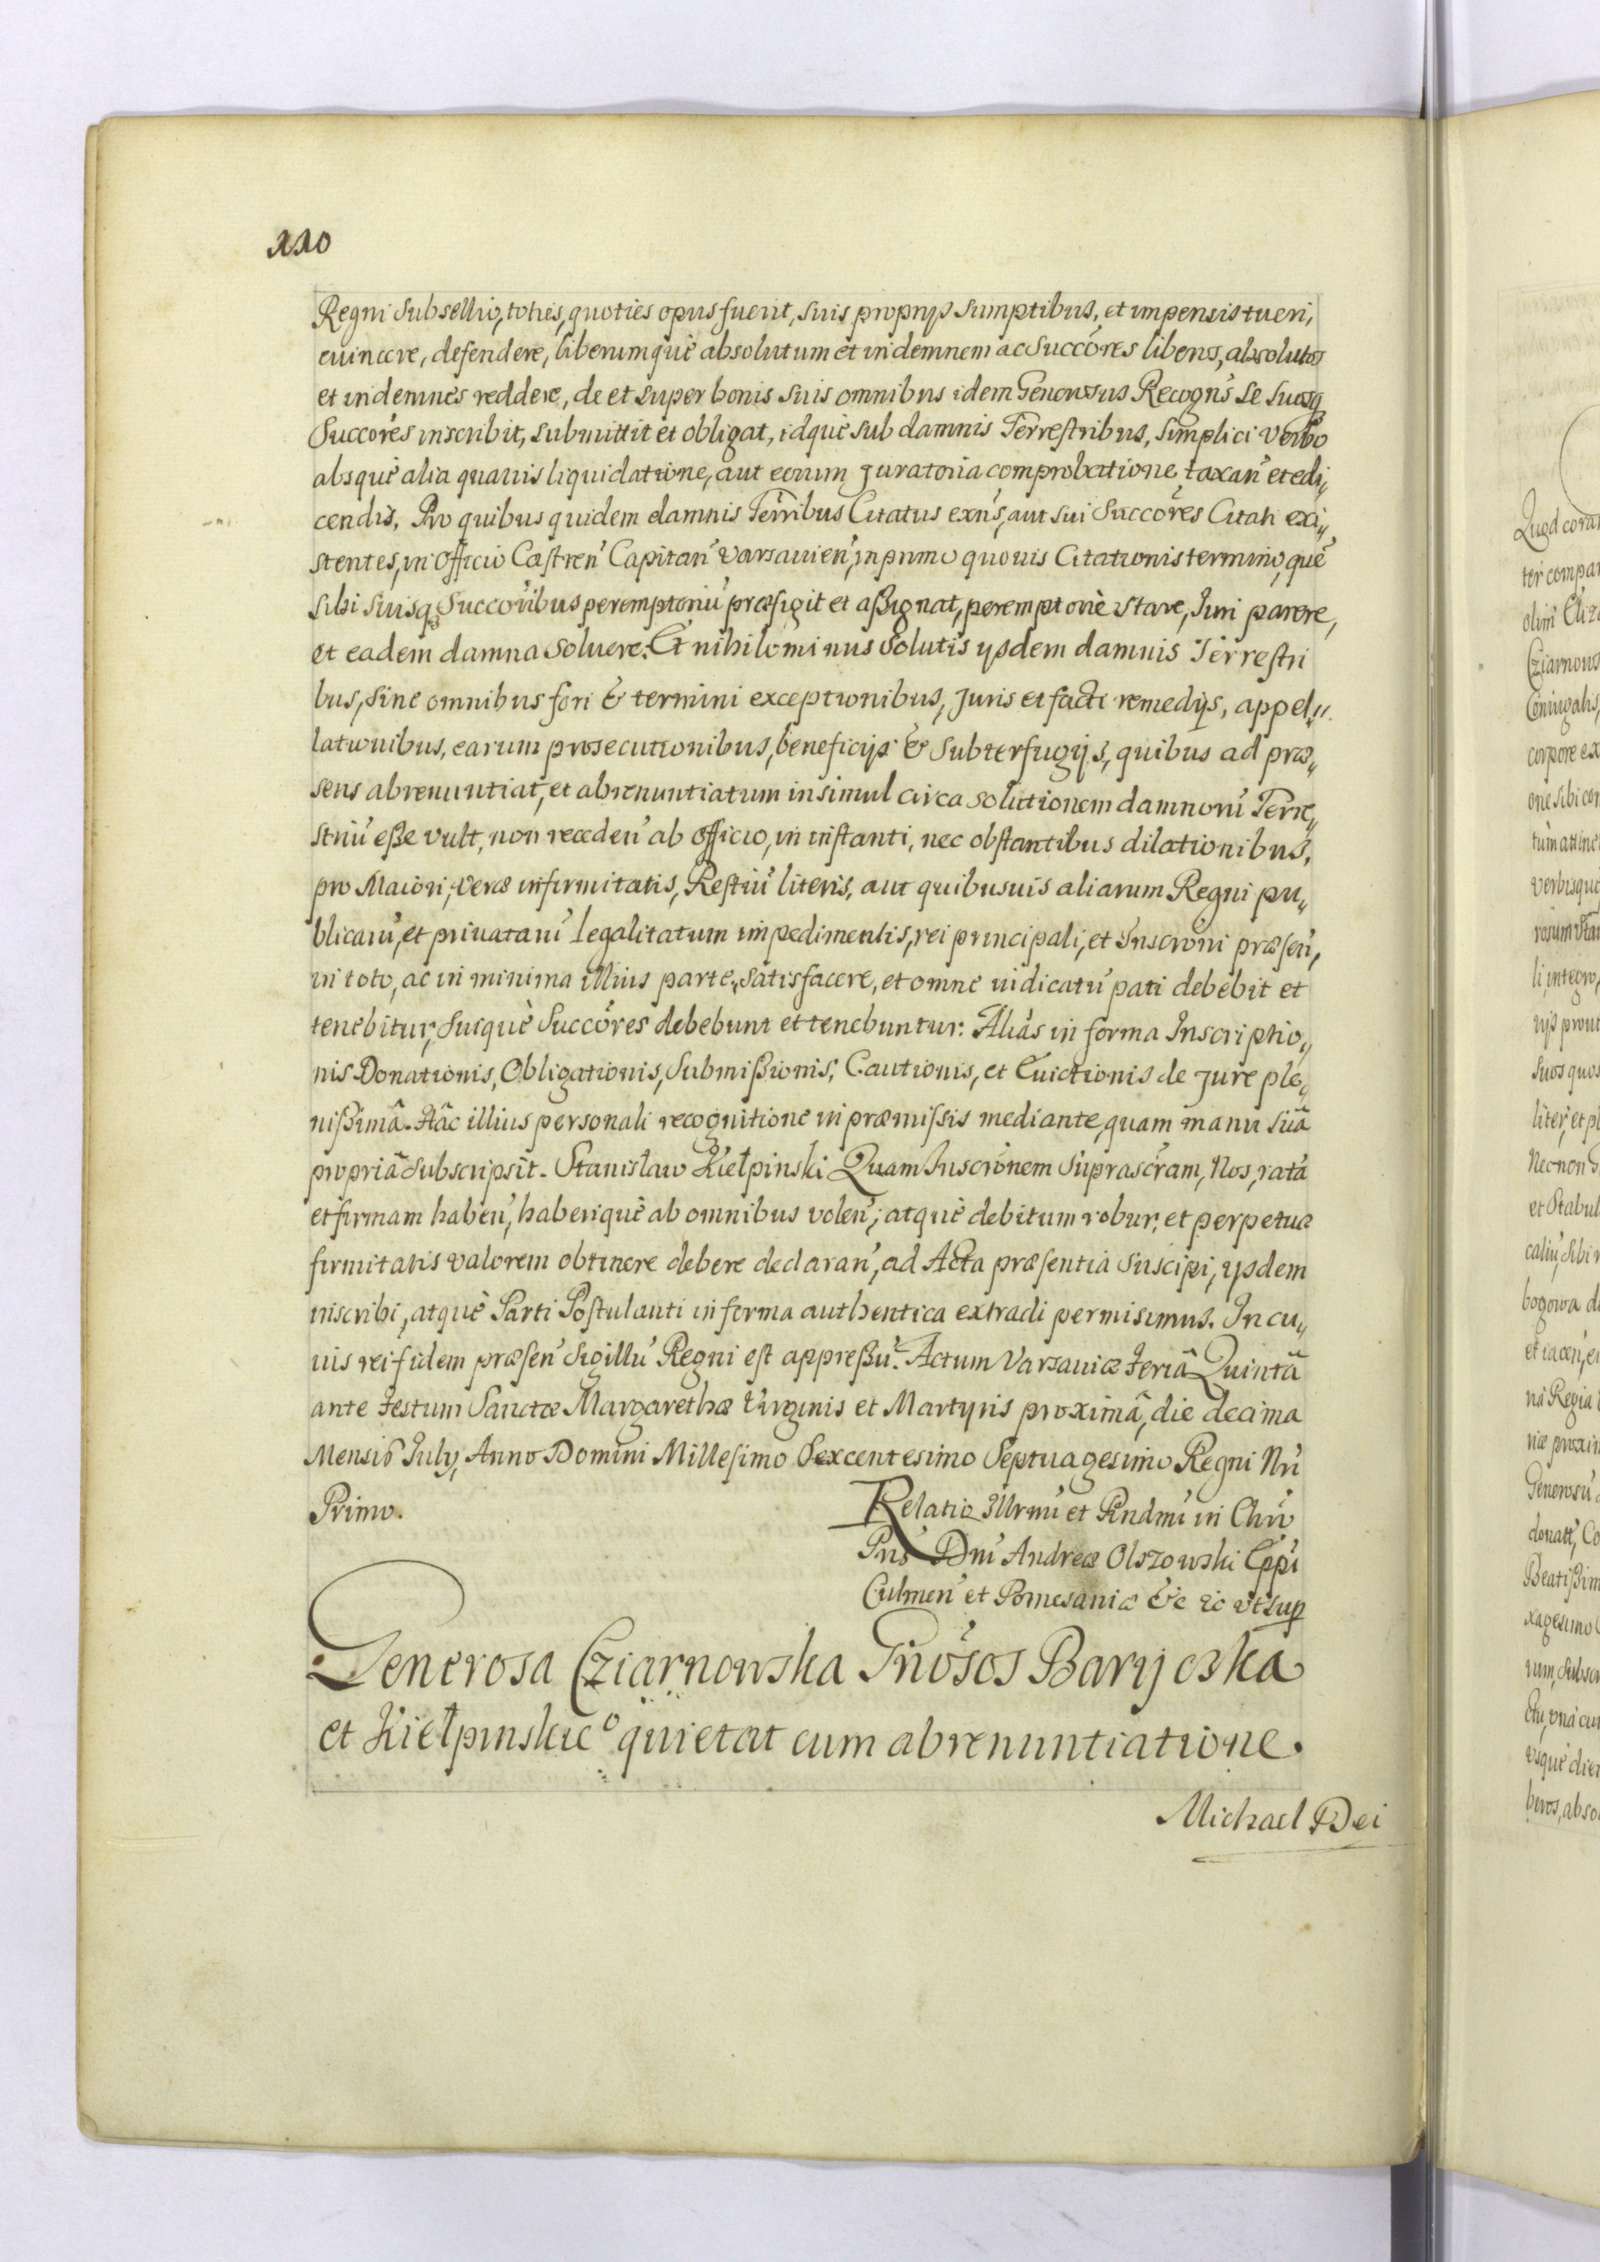 110
Regni Subsellio, toties, quoties opus fuerit, suis proprijs sumptibus, et impensis tueri,
euincere, defendere, liberumquè absolutum et indemnem ac Succóres liberos, absolutos
et indemnes reddere, de et super bonis suis omnibus idem Generosus Recogns̃ se suosq
Succores inscribit, submittit et obligat, idquè sub damnis Terrestribus, simplici verbo
absquè alia quauis liquidatione, aut eorum juratoria comprobatione taxañ et edi„
cendis. Pro quibus quidem damnis Terribus Citatus exñs, aut sui Succores Citati exi„
stentes, in Officio Castreñ Capitañ Varsauieñ, in primo quouis Citationis termino, què
sibi suisq Succoribus peremptoriũ præfigit et aßignat, peremptoriè stare, Juri parere,
et eadem damna soluere. Et nihilominus solutis ijsdem damnis Terrestri
bus, sine omnibus fori & termini exceptionibus, juris et facti remedijs, appel„
lationibus, earum prosecutionibus, beneficijs & subterfugijs, quibus ad præ„
sens abrenuntiat, et abrenuntiatum insimul circa solutionem damnorũ Terre„
striũ eße vult, non recedeñ ab officio, in instanti, nec obstantibus dilationibus,
pro Maiori, veræ infirmitatis, Restiũ literis, aut quibusuis aliarum Regni pu„
blicarũ, et priuatarũ legalitatum impedimentis, rei principali, et Inscrõni præseñ,
in toto, ac in minima illius parte, satisfacere, et omne iudicatũ pati debebit et
tenebitur, suiquè Succóres debebunt et tenebuntur: Aliàs in forma Inscriptio„
nis Donationis, Obligationis, Submißionis, Cautionis, et Euictionis de jure ple„
nißimâ. Hâc illius personali recognitione in præmissis mediante, quam manu suâ
propriâ subscripsit. Stanisław Kiełpinski Quam Inscrõnem suprascr̃am, Nos, ratã
et firmam habeñ, haberiquè ab omnibus voleñ, atquè debitum robur, et perpetuæ
firmitatis valorem obtinere debere declarañ, ad Acta præsentia suscipi, ijsdem
inscribi, atquè Parti Postulanti in forma authentica extradi permisimus. In cu„
uis rei fidem præseñ Sigillũ Regni est appreßũ. Actum Varsauiæ Feriâ Quintâ
ante Festum Sanctæ Margarethæ Virginis et Martyris proximâ, die decima
Mensis July, Anno Domini Millesimo Sexcentesimo Septuagesimo Regni Nrĩ
Primo.
Relatio Illrmĩ et Rndmĩ in Chrõ
Pris Dnĩ Andreæ Olszowski Eppĩ
Culmeñ et Pomesaniæ &c &c vt sup
Generosa Cziarnowska Gnõsos Baryczka
et Kiełpinskie° quietat cum abrenuntiatione.
Michael Dei